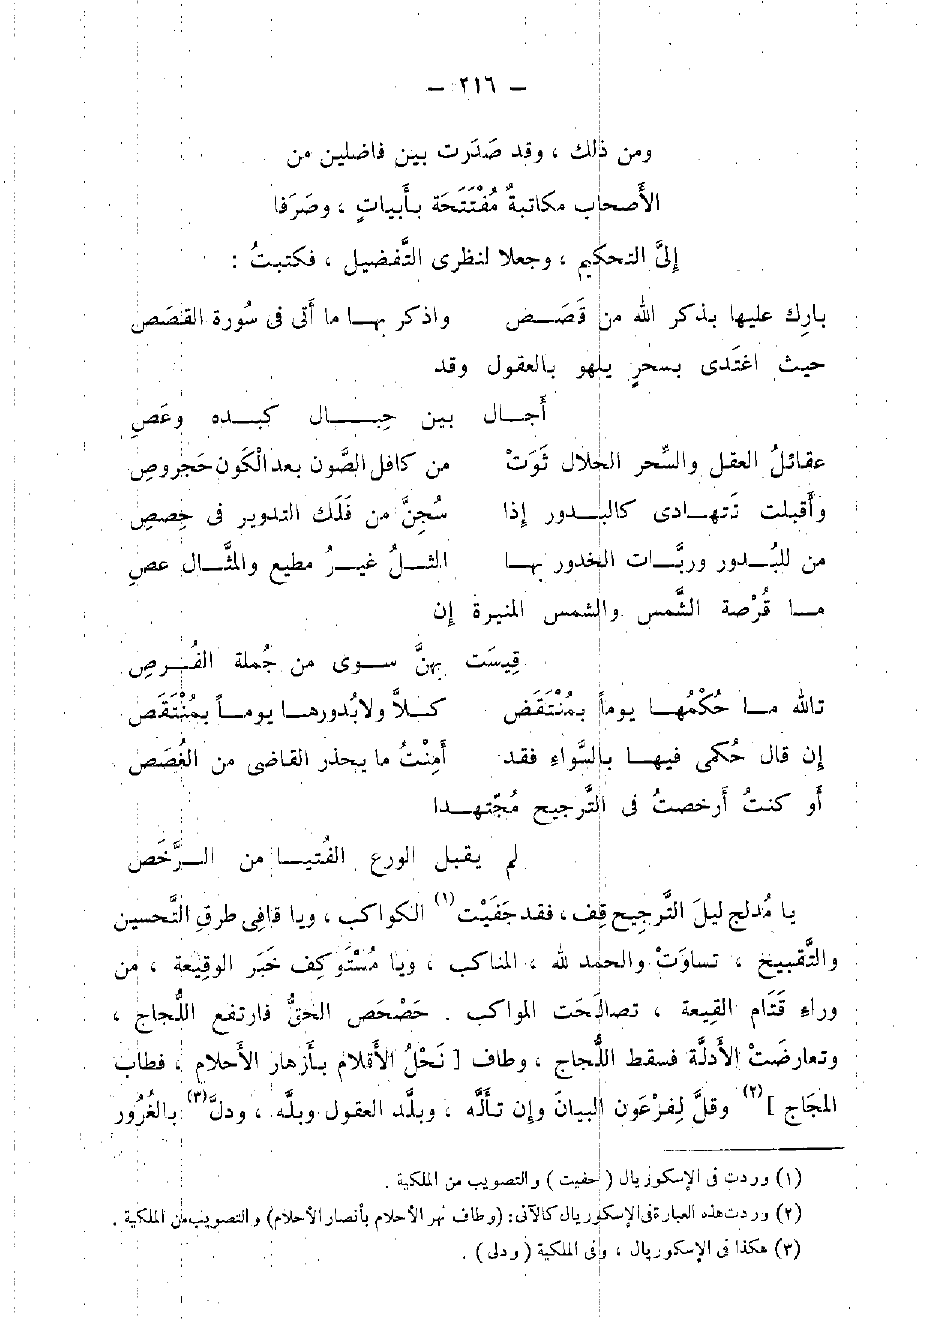 — ٢١٦ —
ومن ذلك ، وقد صَدَرت بين فاضلين من
الأَصحاب مكاتبةٌ مُفْتَتَحة بأَبياتٍ ، وصَرَفا
إلىَّ التحكيم ، وجعلا لنظرى التَّفضيل ، فكتبتُ :
بارِك عليها بذكر الله من قَصَـص واذكر بهـا ما أَتى فى سُورة القصَص
حيث اغتَدى بسحرٍ يلهو بالعقول وقد
أَجـال بين حِبـال كيده وعَصِ
عقائلُ العقل والسِّحر الحلال ثَوَتْ من كافل الصَّون بعد الْكَون حَجروصِ
وأَقبلت تَتهـادى كالبـدور إذا سُجِنَّ من فَلَك التدوير فى حِصصِ
من للبُـدور وربَّات الخدور بهـا المثـلُ غيـرُ مطيع والمثَّـال عصِ
مـا قُرْصة الشَّمس والشمس المنيرة إن
قِيسَت بهنَّ سـوى من جُملة القُـرصِ
تالله مـا حُكْمُهـا يوماً بمُنْتَقَض كـلاَّ ولابُدورهـا يومـاً بمُنْتَقَص
إن قال حُكمى فيهـا بالسَّواءِ فقد أَمِنْتُ ما يحذر القاضى من الغُصَص
أَو كنتُ أَرخصتُ فى التَّرجيح مُجْتهـدا
لم يقبل الورع الفُتيـا من الـرُّخَص
يا مُدلج ليلَ التَّرجيح قِف ، فقد خَفَيْت(١) الكواكب ، ويا قافى طرقِ التَّحسين
والتَّقبيح ، تساوَتْ والحمد لله ، المناكب ، ويا مُسْتَوكِف خَبَر الوقِيعة ، من
وراءِ قَتَام القِيعة ، تصالَحَت المواكب . حَصْحَص الحقُّ فارتفع اللُّجاج ،
وتعارضَتْ الأَدلَّة فسقط اللُّجاج ، وطاف [ نَحْلُ الأَقلام بأَزهار الأَحلام ، فطاب
المجَاج ](٢) وقلَّ لِفرْعَون البيانَ وإن تأَلَّه ، وبلَّد العقول وبلَّه ، ودلَّ(٣) بالغُرُور
(١) وردت فى الإسكوريال ( حفيت ) والتصويب من الملكية .
(٢) وردت هذه العبارة فى الإسكوريال كالآتى : (وطاف نهر الأحلام بأنصار الأحلام) والتصويب من الملكية .
(٣) هكذا فى الإسكوريال ، وفى الملكية ( ودلى ) .